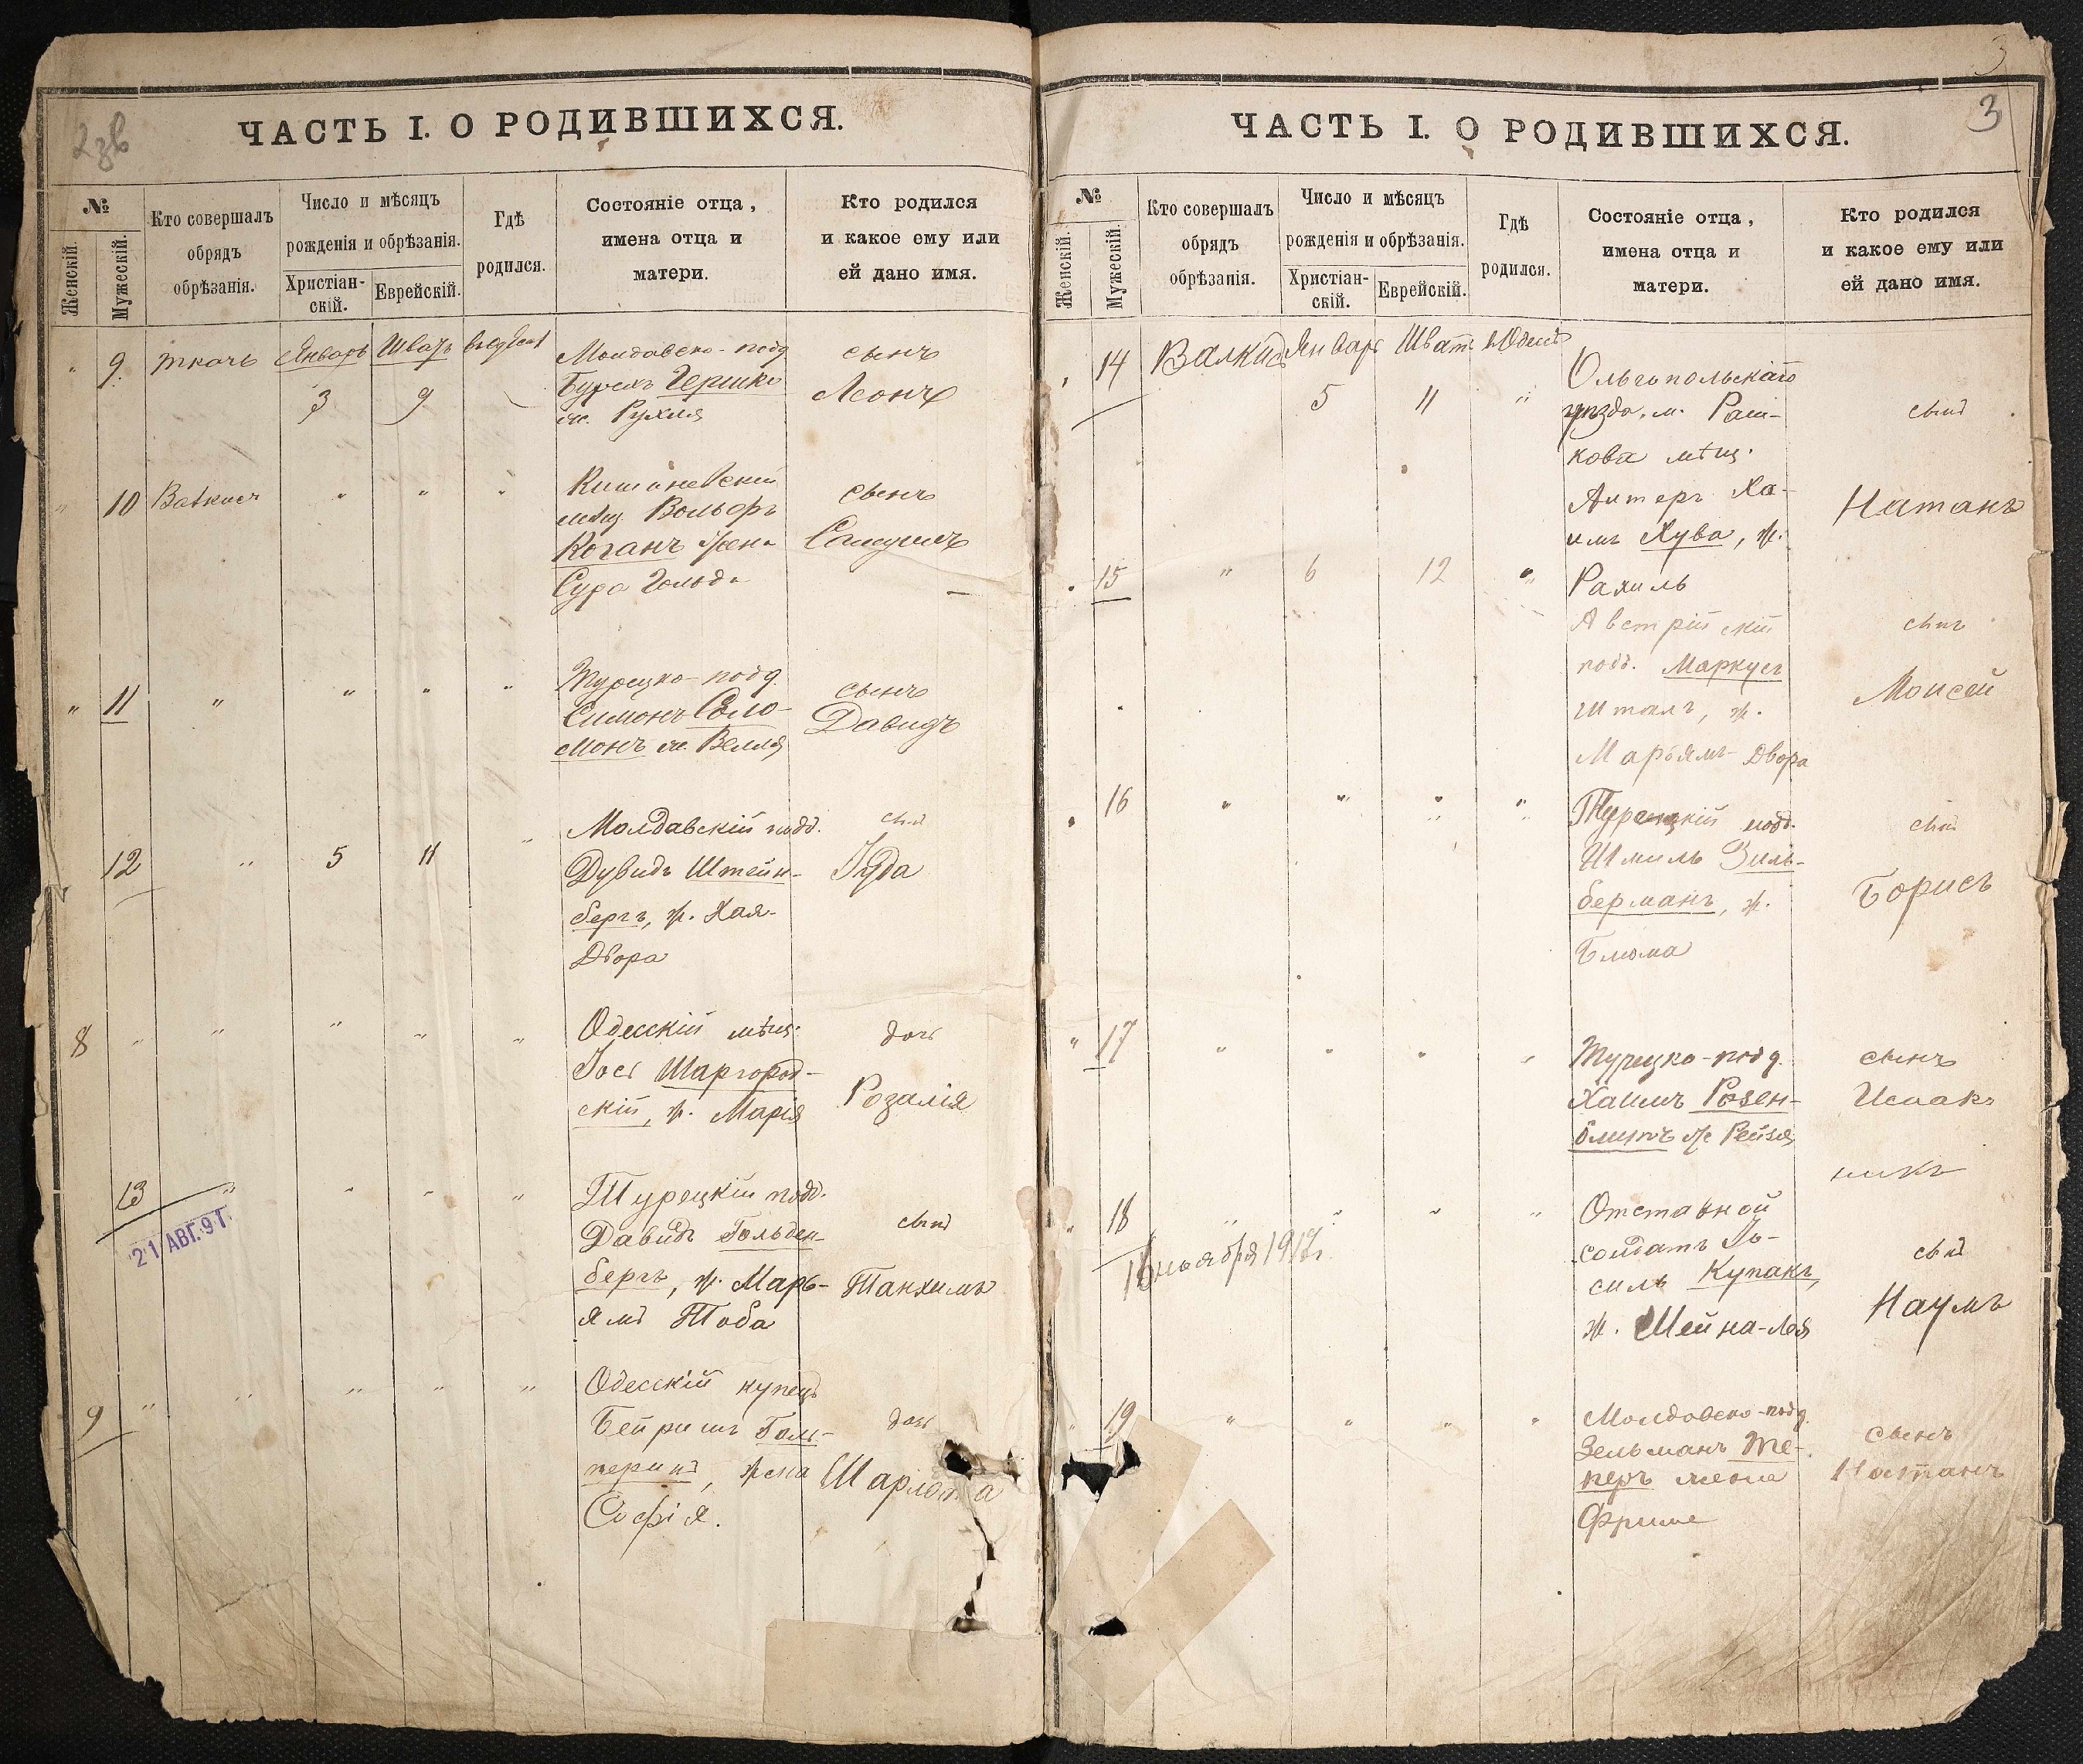 2зв
ЧАСТЬ I. О РОДИВШИХСЯ.
№
Женскій.
Мужескій.
Кто совершалъ
обрядъ
обрѣзанія.
Число и мѣсяцъ
рожденія и обрѣзанія.
Христіан-
скій.
Еврейскій.
Гдѣ
родился.
Состояніе отца,
имена отца и
матери.
Кто родился
и какое ему или
ей дано имя.
" 9. Ткачъ Январь Шватъ
3 9
Молдавско-подд
Гершко
ж. Рухля
сынъ
Леонъ
" 10 " " "
Кишиневскій
мѣщ. Вольфъ
Коганъ жена
Сура Гольда
сынъ
Самуилъ
" 11 " " " "
Турецко-подд.
Симонъ Соло-
монъ ж. Велля
сынъ
Давидъ
12 " 5 11 "
Молдавскій подд.
Дувидъ Штейн-
бергъ, ж. Хая-
Двора
сынъ
Іуда
8 " " " " "
Одесскій мѣщ.
Іось Шаргород-
скій, ж. Марія
дочь
Розалія
13 " " " "
21 АВГ. 9 Г.
Турецкій подд.
Давидъ Гольден-
бергъ, ж. Марь-
ямъ Тоба
сынъ
Танхимъ
9 " " " " "
Одесскій купецъ
Бейришъ Галь-
перинъ, жена
Софія.
дочь
Шарлотта
3
3
ЧАСТЬ I. О РОДИВШИХСЯ.
№
Женскій.
Мужескій.
Кто совершалъ
обрядъ
обрѣзанія.
Число и мѣсяцъ
рожденія и обрѣзанія.
Христіан-
скій.
Еврейскій.
Гдѣ
родился.
Состояніе отца,
имена отца и
матери.
Кто родился
и какое ему или
ей дано имя.
14 Валкисъ Январь Шватъ
5 11 "
Ольгопольскаго
уѣзда, м. Раш-
кова мѣщ.
Алтеръ Ха-
имъ Хува, ж.
Рахиль
сынъ
Натанъ
15 " 6 12 "
Австрійскій
подд. Маркусъ
Шталъ, ж.
Марьямъ-Двора
сынъ
Моисей
16 " " " "
Турецкій подд.
Шмиль Зиль-
берманъ, ж.
Блюма
сынъ
Борисъ
" 17 " " " "
Турецко-подд.
Хаимъ Розен-
блитъ ж Рейзя
сынъ
Исаакъ
" 18 " " " "
16 ноября 1917г.
Отставной
солдатъ Іо-
силь Купакъ,
ж. Шейна-Лея
сынъ
Наумъ
" 19 " " " "
Молдавско-подд.
Зельманъ Те-
перъ жена
Фрима
сынъ
Натанъ